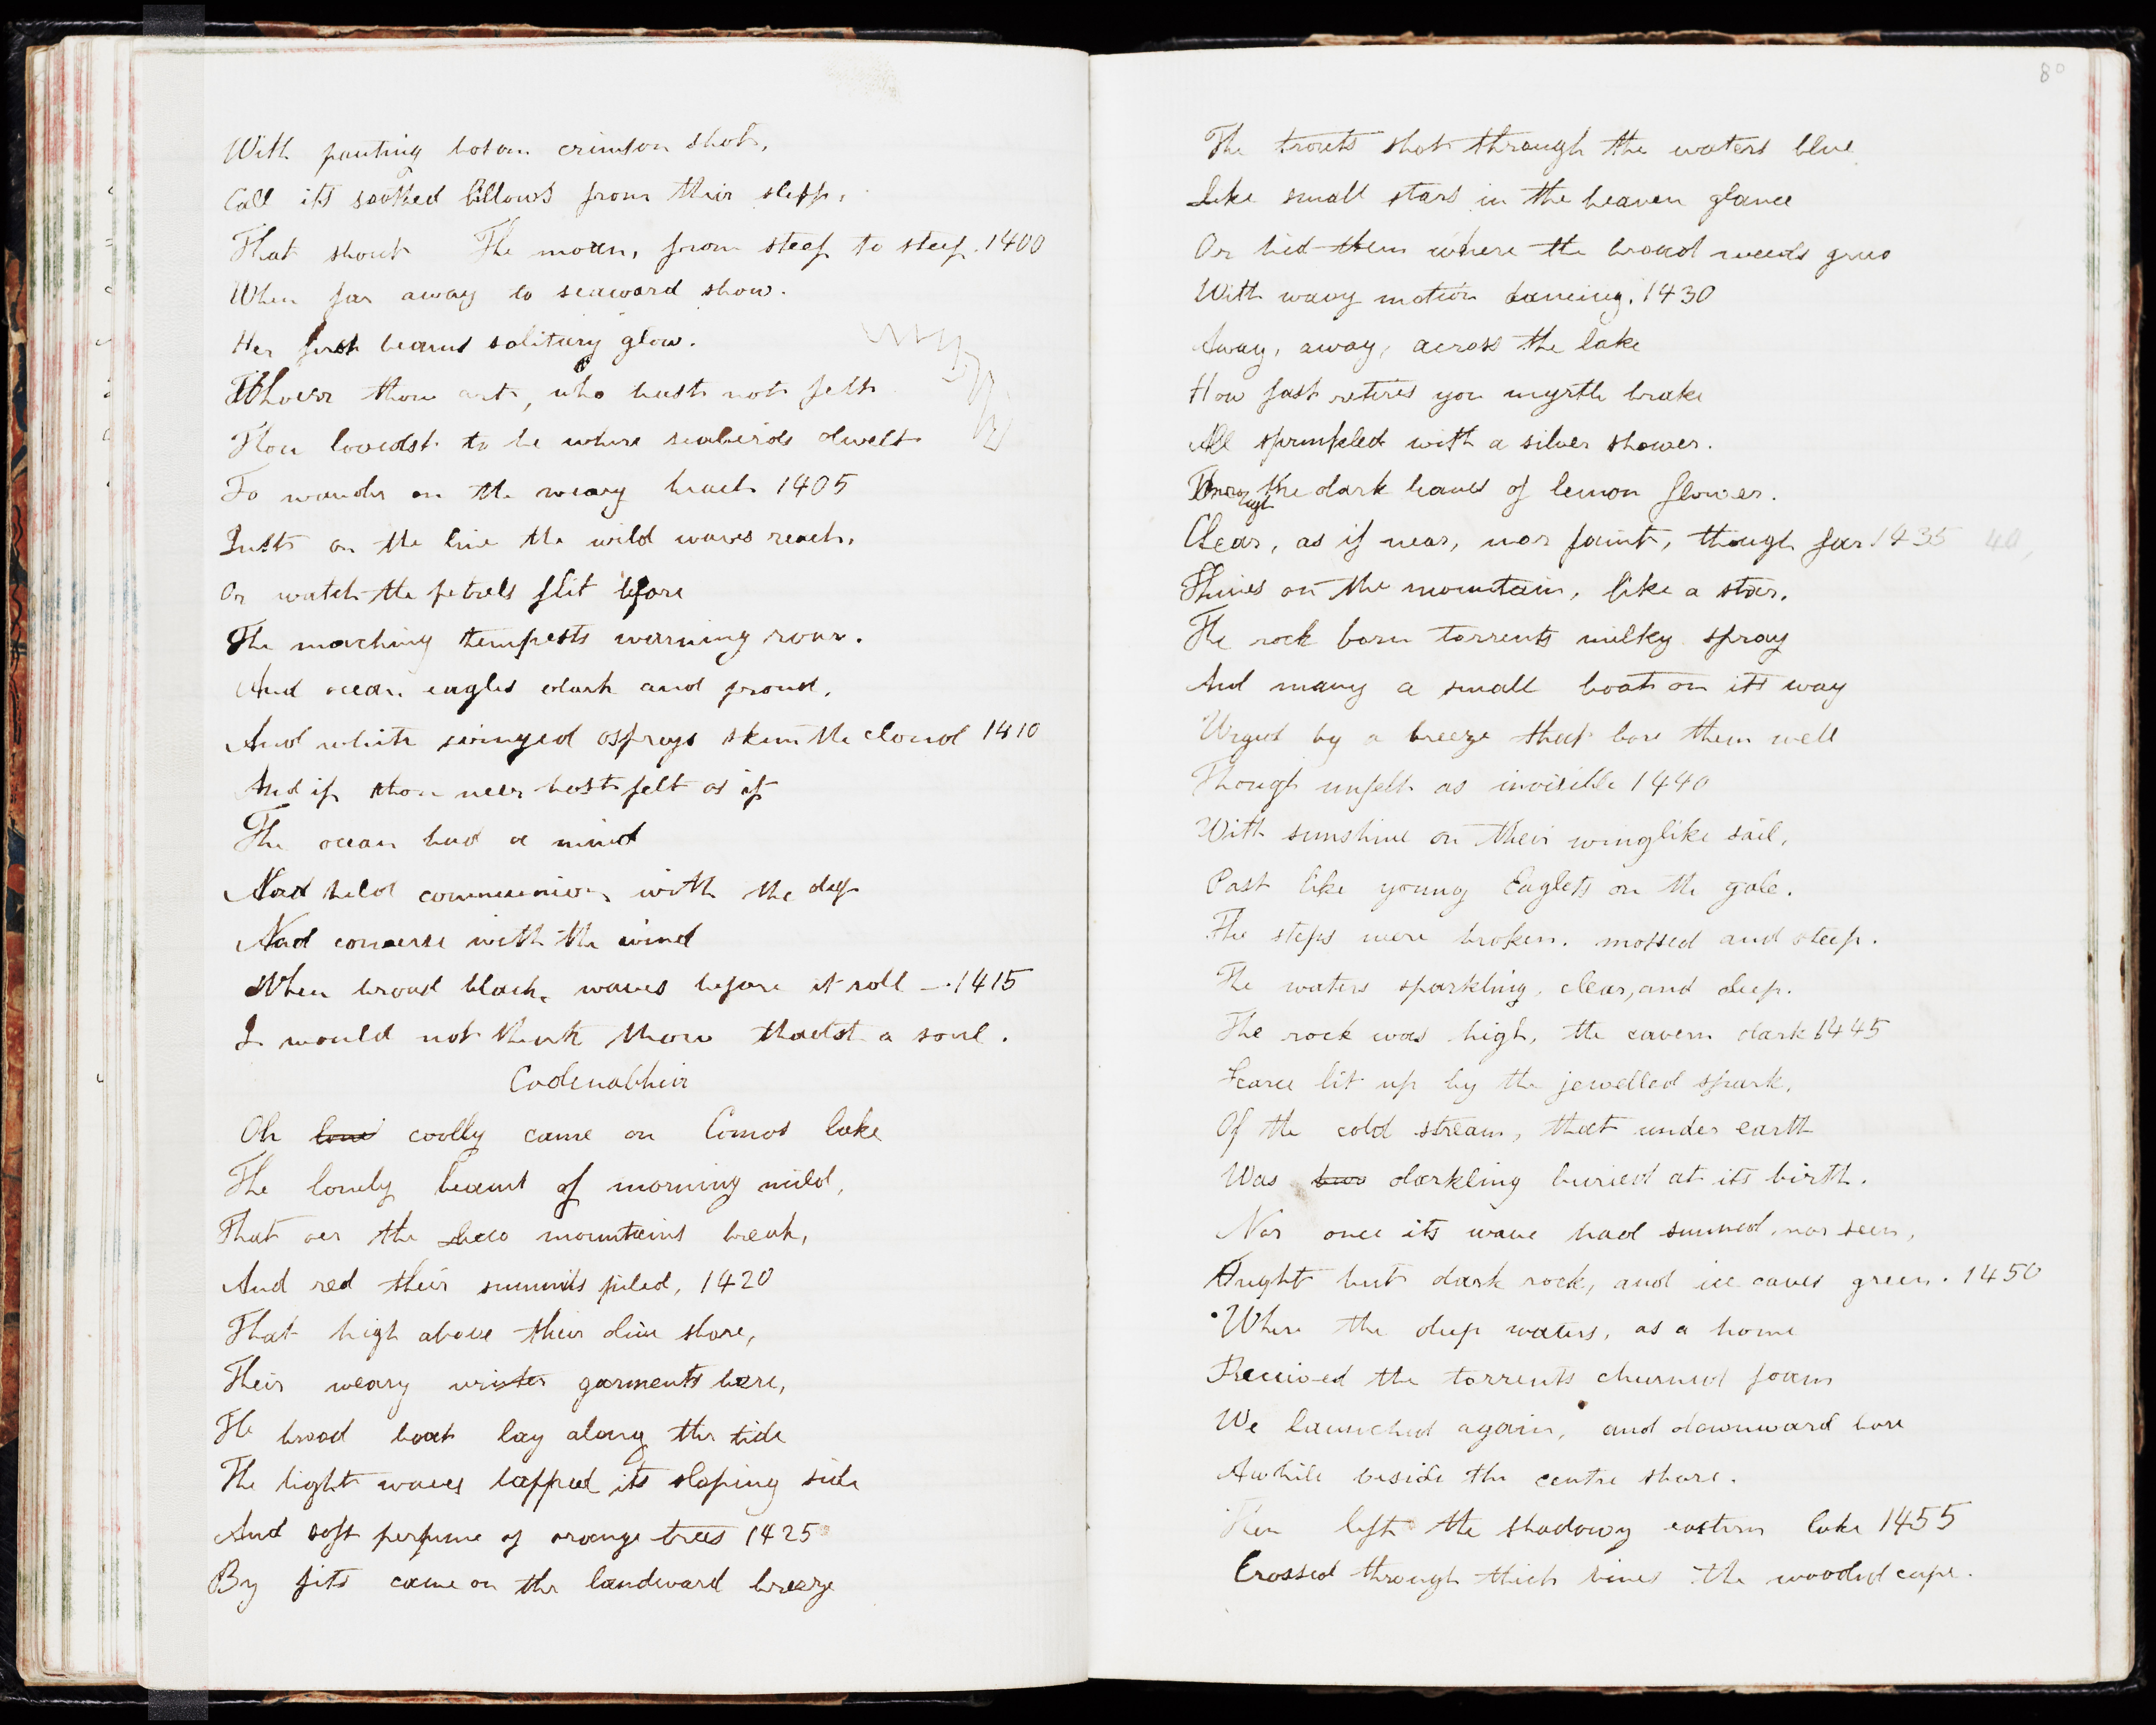 With panting bosom crimson shot,
Call its soothed billows from their sleep,
That shout The moan, from steep to steep. 1400
When far away to seaward show.
Her first beams solitary glow.
Whoeer thou art, who hast not felt
Thou lovedst to be where seabirds dwelt
To wander on the weary beach 1405
Just on the line the wild waves reach,
Or watch the petrels flit before
The marching tempests warning roar.
And ocean eagles dark and proud,
And white winged osprays skim the cloud 1410
And if thou neer hast felt as if
The ocean had a mind
Nor held communion with the deep
Nad converse with the wind
When broad black waves before it roll —. 1415
I would not think thou thadst a soul.
Cadenabbia
Oh coolly came on Comos lake
The lonely beams of morning mild,
That oer the Lecco mountains break,
And red their summits piled, 1420
That high above their dim shore,
Their weary winter garments bore,
The broad boat lay along the tide
The light waves lapped its sloping side
And soft perfume of orange trees 1425
By fits came on the landward breeze
80
The trouts shot through the waters blue
Like small stars in the heaven glance
Or hid them where the broad weeds grew
With wavy motion dancing. 1430
Away, away, across the lake
How fast retires yon myrtle brake
All sprinkled with a silver shower.
Through the dark leaves of lemon flower.
Clear, as if near, nor faint, though far 1435 40,
Shines on the mountain, like a star.
The rock born torrents milky spray
And many a small boat on its way
Urged by a breeze that bore them well
Though unfelt as invisible 1440
With sunshine on their winglike sail,
Past like young Eaglets on the gale.
The steps were broken. mossed and steep.
The waters sparkling, clear, and deep.
The rock was high, the cavern dark 1445
Scarce lit up by the jewelled spark,
Of the cold stream, that under earth
Was darkling buried at its birth.
Nor once its wave had sunned, nor seen,
Aught but dark rock, and ice caves green. 1450
Where the deep waters, as a home
Received the torrents churned foam
We launched again, and downward bore
Awhile beside the centre shore.
Then left the shadowy eastern lake 1455
Crossed through thick vines the wooded cape.